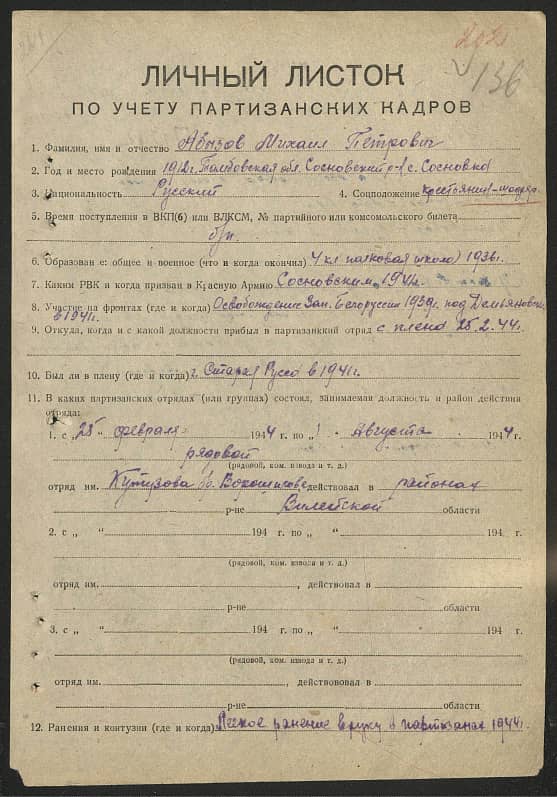 136
ЛИЧНЫЙ ЛИСТОК
ПО УЧЕТУ ПАРТИЗАНСКИХ КАДРОВ
1. Фамилия, имя и отчество Абызов Михаил Петрович
2. Год и место рождения 1912г. Тамбовская обл. Сосновский р-н с. Сосновка
3. Национальность Русский 4. Соцположение крестьянин-шофер
5. Время поступления в ВКП(б) или ВЛКСМ, № партийного или комсомольского билета
б/п.
6. Образован е: общее и военное (что и когда окончил) 4 кл полковая школа 1936г.
7. Каким РВК и когда призван в Красную Армию Сосновским 1941г.
8. Участие на фронтах (где и когда) Освобождение Зап. Белоруссии 1939г. под
в 1941г.
9. Откуда, когда и с какой должности прибыл в партизанкий отряд с плена 25.2.44г.
10. Был ли в плену (где и когда) г. Старая Русса в 1941г.
11. В каких партизанских отрядах (или группах) состоял, занимаемая должность и район действия
отряда:
1. с „25" февраля 1944 г. по „1" Августа 1944 г.
рядовой
(рядовой, ком. взвода и т. д.)
отряд им. Кутузова бр. Ворошилова действовал в районах
р-не Вилейской области
2. с „ " 194 г. по „ " 194 г.
(рядовой, ком. взвода и т. д.)
отряд им. , действовал в
р-не области
3. с „ " 194 г. по „ " 194 г.
(рядовой, ком. взвода и т. д.)
отряд им. , действовал в
р-не области
12. Ранения и контузии (где и когда) Легкое ранение в руку в партизанах 1944г.